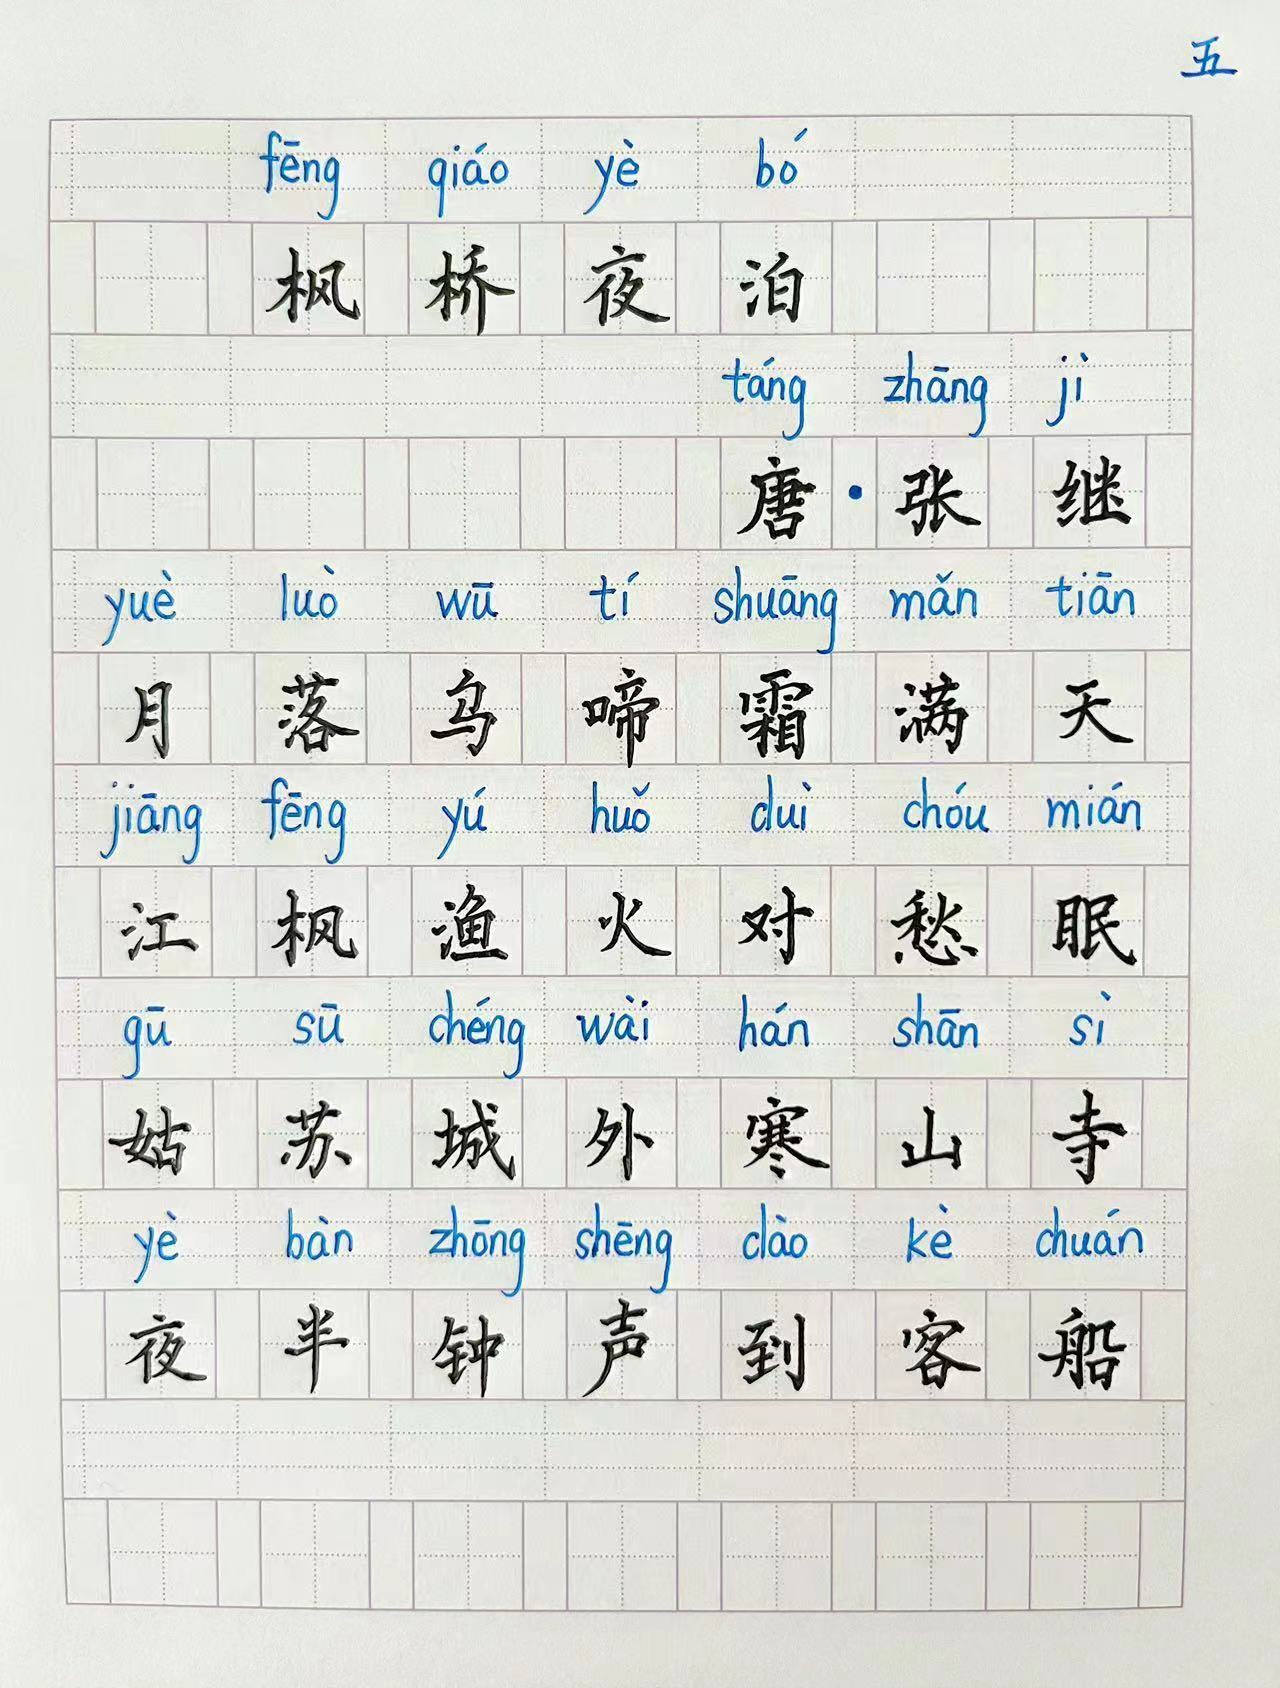 五
fēng qiáo yè bó
枫桥夜泊
táng zhāng jì
唐·张继
yuè luò wū tí shuāng mǎn tiān
月落乌啼霜满天
jiāng fēng yú huǒ duì chóu mián
江枫渔火对愁眠
gū sū chéng wài hán shān sì
姑苏城外寒山寺
yè bàn zhōng shēng dào kè chuán
夜半钟声到客船